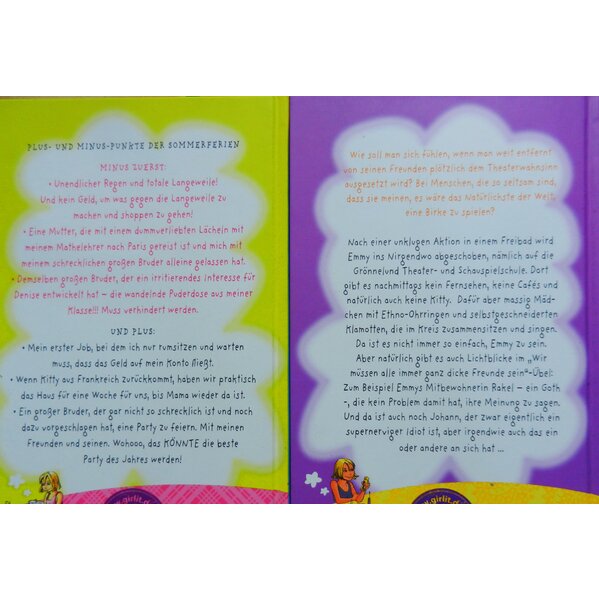 PLUS- UND MINUS-PUNKTE DER SOMMERFERIEN
MINUS ZUERST:
• Unendlicher Regen und totale Langeweile!
Und kein Geld, um was gegen die Langeweile zu
machen und shoppen zu gehen!
• Eine Mutter, die mit einem dummverliebten Lächeln mit
meinem Mathelehrer nach Paris gereist ist und mich mit
meinem schrecklichen großen Bruder alleine gelassen hat.
• Demselben großen Bruder, der ein irritierendes Interesse für
Denise entwickelt hat – die wandelnde Puderdose aus meiner
Klasse!!! Muss verhindert werden.
UND PLUS:
• Mein erster Job, bei dem ich nur rumsitzen und warten
muss, dass das Geld auf mein Konto fließt.
• Wenn Kitty aus Frankreich zurückkommt, haben wir praktisch
das Haus für eine Woche für uns, bis Mama wieder da ist.
• Ein großer Bruder, der gar nicht so schrecklich ist und noch
dazu vorgeschlagen hat, eine Party zu feiern. Mit meinen
Freunden und seinen. Wohooo, das KÖNNTE die beste
Party des Jahres werden!
Wie soll man sich fühlen, wenn man weit entfernt
von seinen Freunden plötzlich dem Theaterwahnsinn
ausgesetzt wird? Bei Menschen, die so seltsam sind,
dass sie meinen, es wäre das Natürlichste der Welt,
eine Birke zu spielen?
Nach einer unklugen Aktion in einem Freibad wird
Emmy ins Nirgendwo abgeschoben, nämlich auf die
Grönnelund Theater- und Schauspielschule. Dort
gibt es nachmittags kein Fernsehen, keine Cafés und
natürlich auch keine Kitty. Dafür aber massig Mäd-
chen mit Ethno-Ohrringen und selbstgeschneiderten
Klamotten, die im Kreis zusammensitzen und singen.
Da ist es nicht immer so einfach, Emmy zu sein.
Aber natürlich gibt es auch Lichtblicke im „Wir
müssen alle immer ganz dicke Freunde sein“-Übel:
Zum Beispiel Emmys Mitbewohnerin Rakel – ein Goth
-, die kein Problem damit hat, ihre Meinung zu sagen.
Und da ist auch noch Johann, der zwar eigentlich ein
supernerviger Idiot ist, aber irgendwie auch das ein
oder andere an sich hat ...